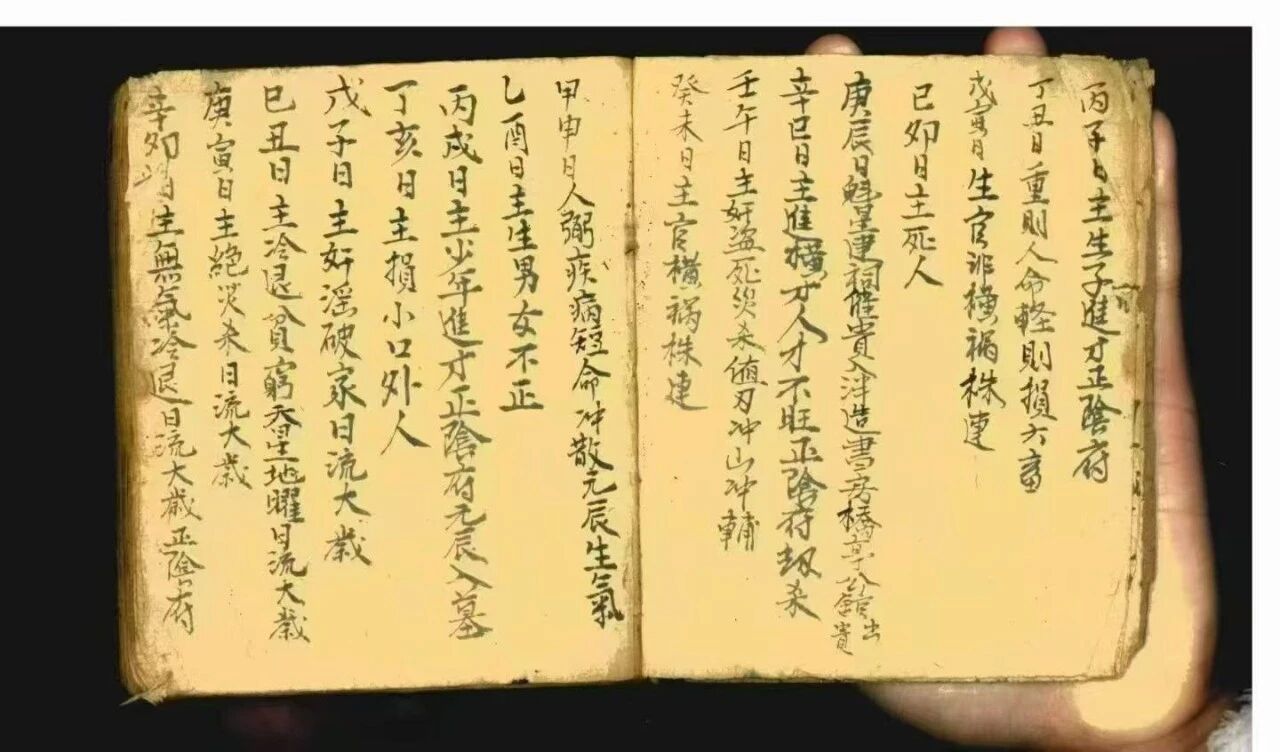 丙子日主生子進才正陰府
丁丑日重則人命軽則損六畜
戊寅日生官非橫禍株連
己卯日主死人
庚辰日魁星建祠催貴入泮造書房橋亭公館出貴
辛巳日主進橫才人才不旺正陰府刼杀
壬午日主奸盗死災杀値刃冲山冲輔
癸未日主官橫禍株連
甲申日人弱疾病短命冲散元辰生氣
乙酉日主生男女不正
丙戌日主少年進才正陰府元辰入墓
丁亥日主損小口外人
戊子日主奸淫破家日流大歳
巳丑日主冷退貧窮吞星地曜日流大歳
庚寅日主絕災杀日流大歳
辛卯日主無氣冷退日流大歳正陰府